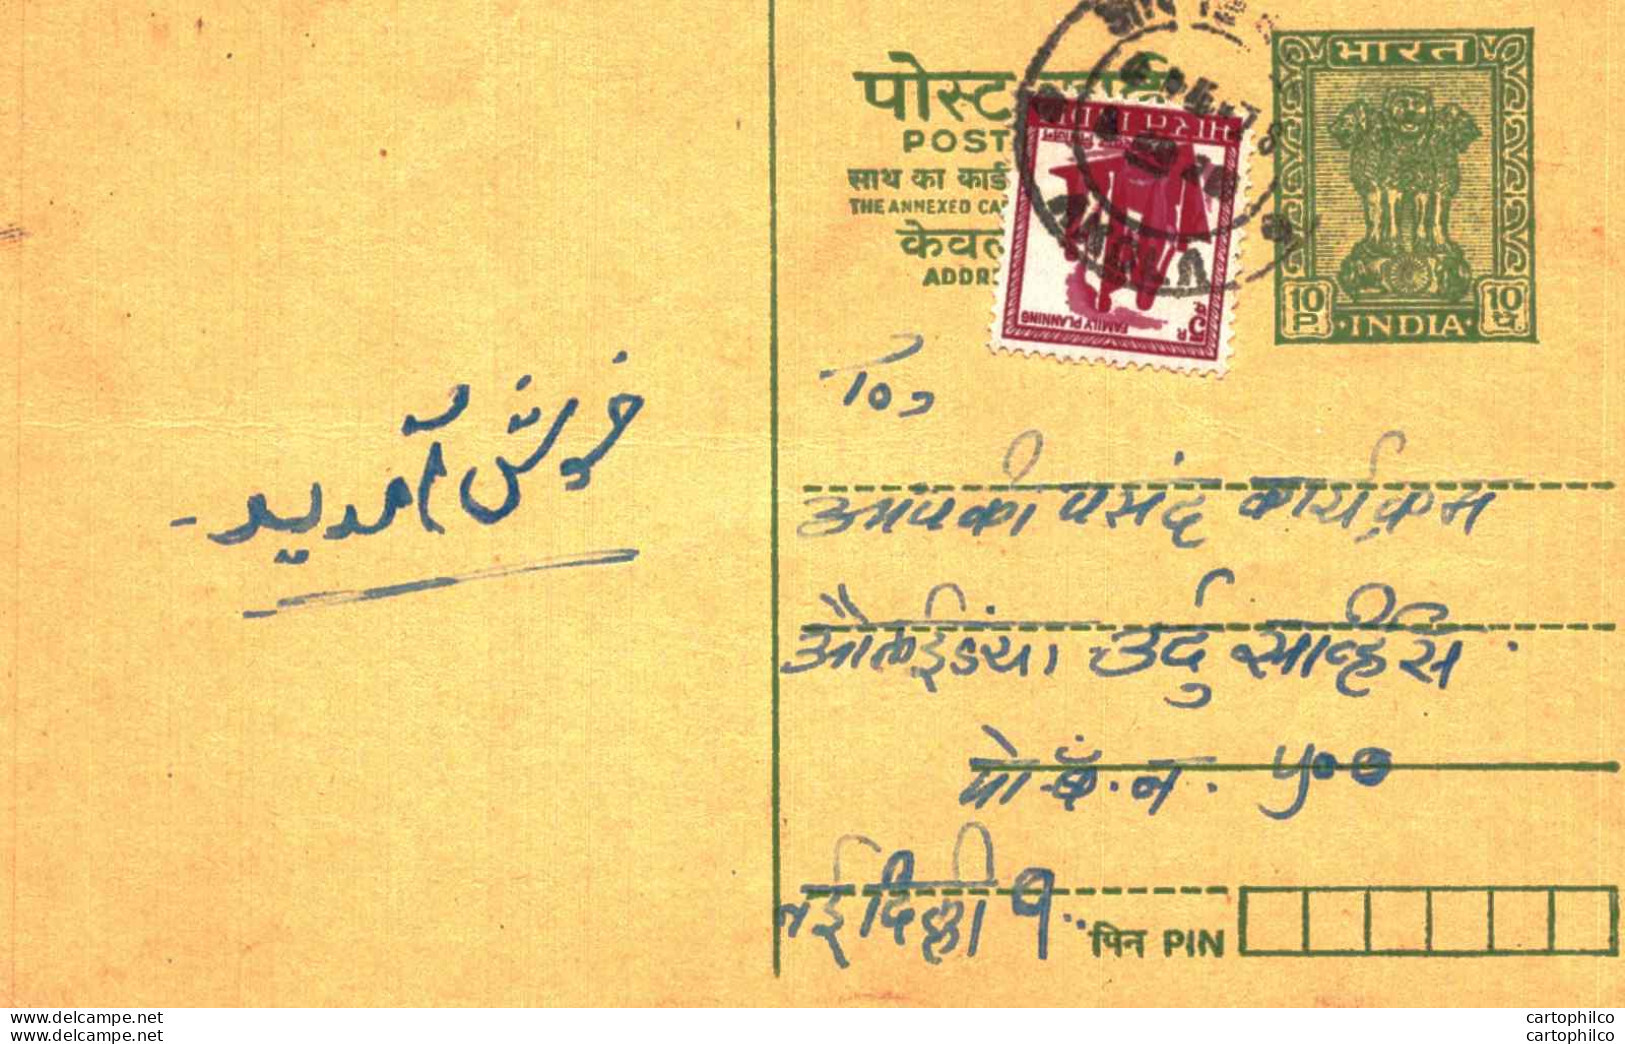 पोस्ट
POST
साथ का कार्ड
THE ANNEXED CA
केवल
ADDRE
भारत
10 P
INDIA
10 प
भारत INDIA
FAMILY PLANNING
5
AKOLA
To,
आपकी पसंद कार्यक्रम
ऑल इंडिया उर्दु सर्व्हिस
पो. बॅ. न. ५००
नई दिल्ली १
पिन PIN
خوش آمدید
www.delcampe.net
www.delcampe.net
cartophilco
cartophilco